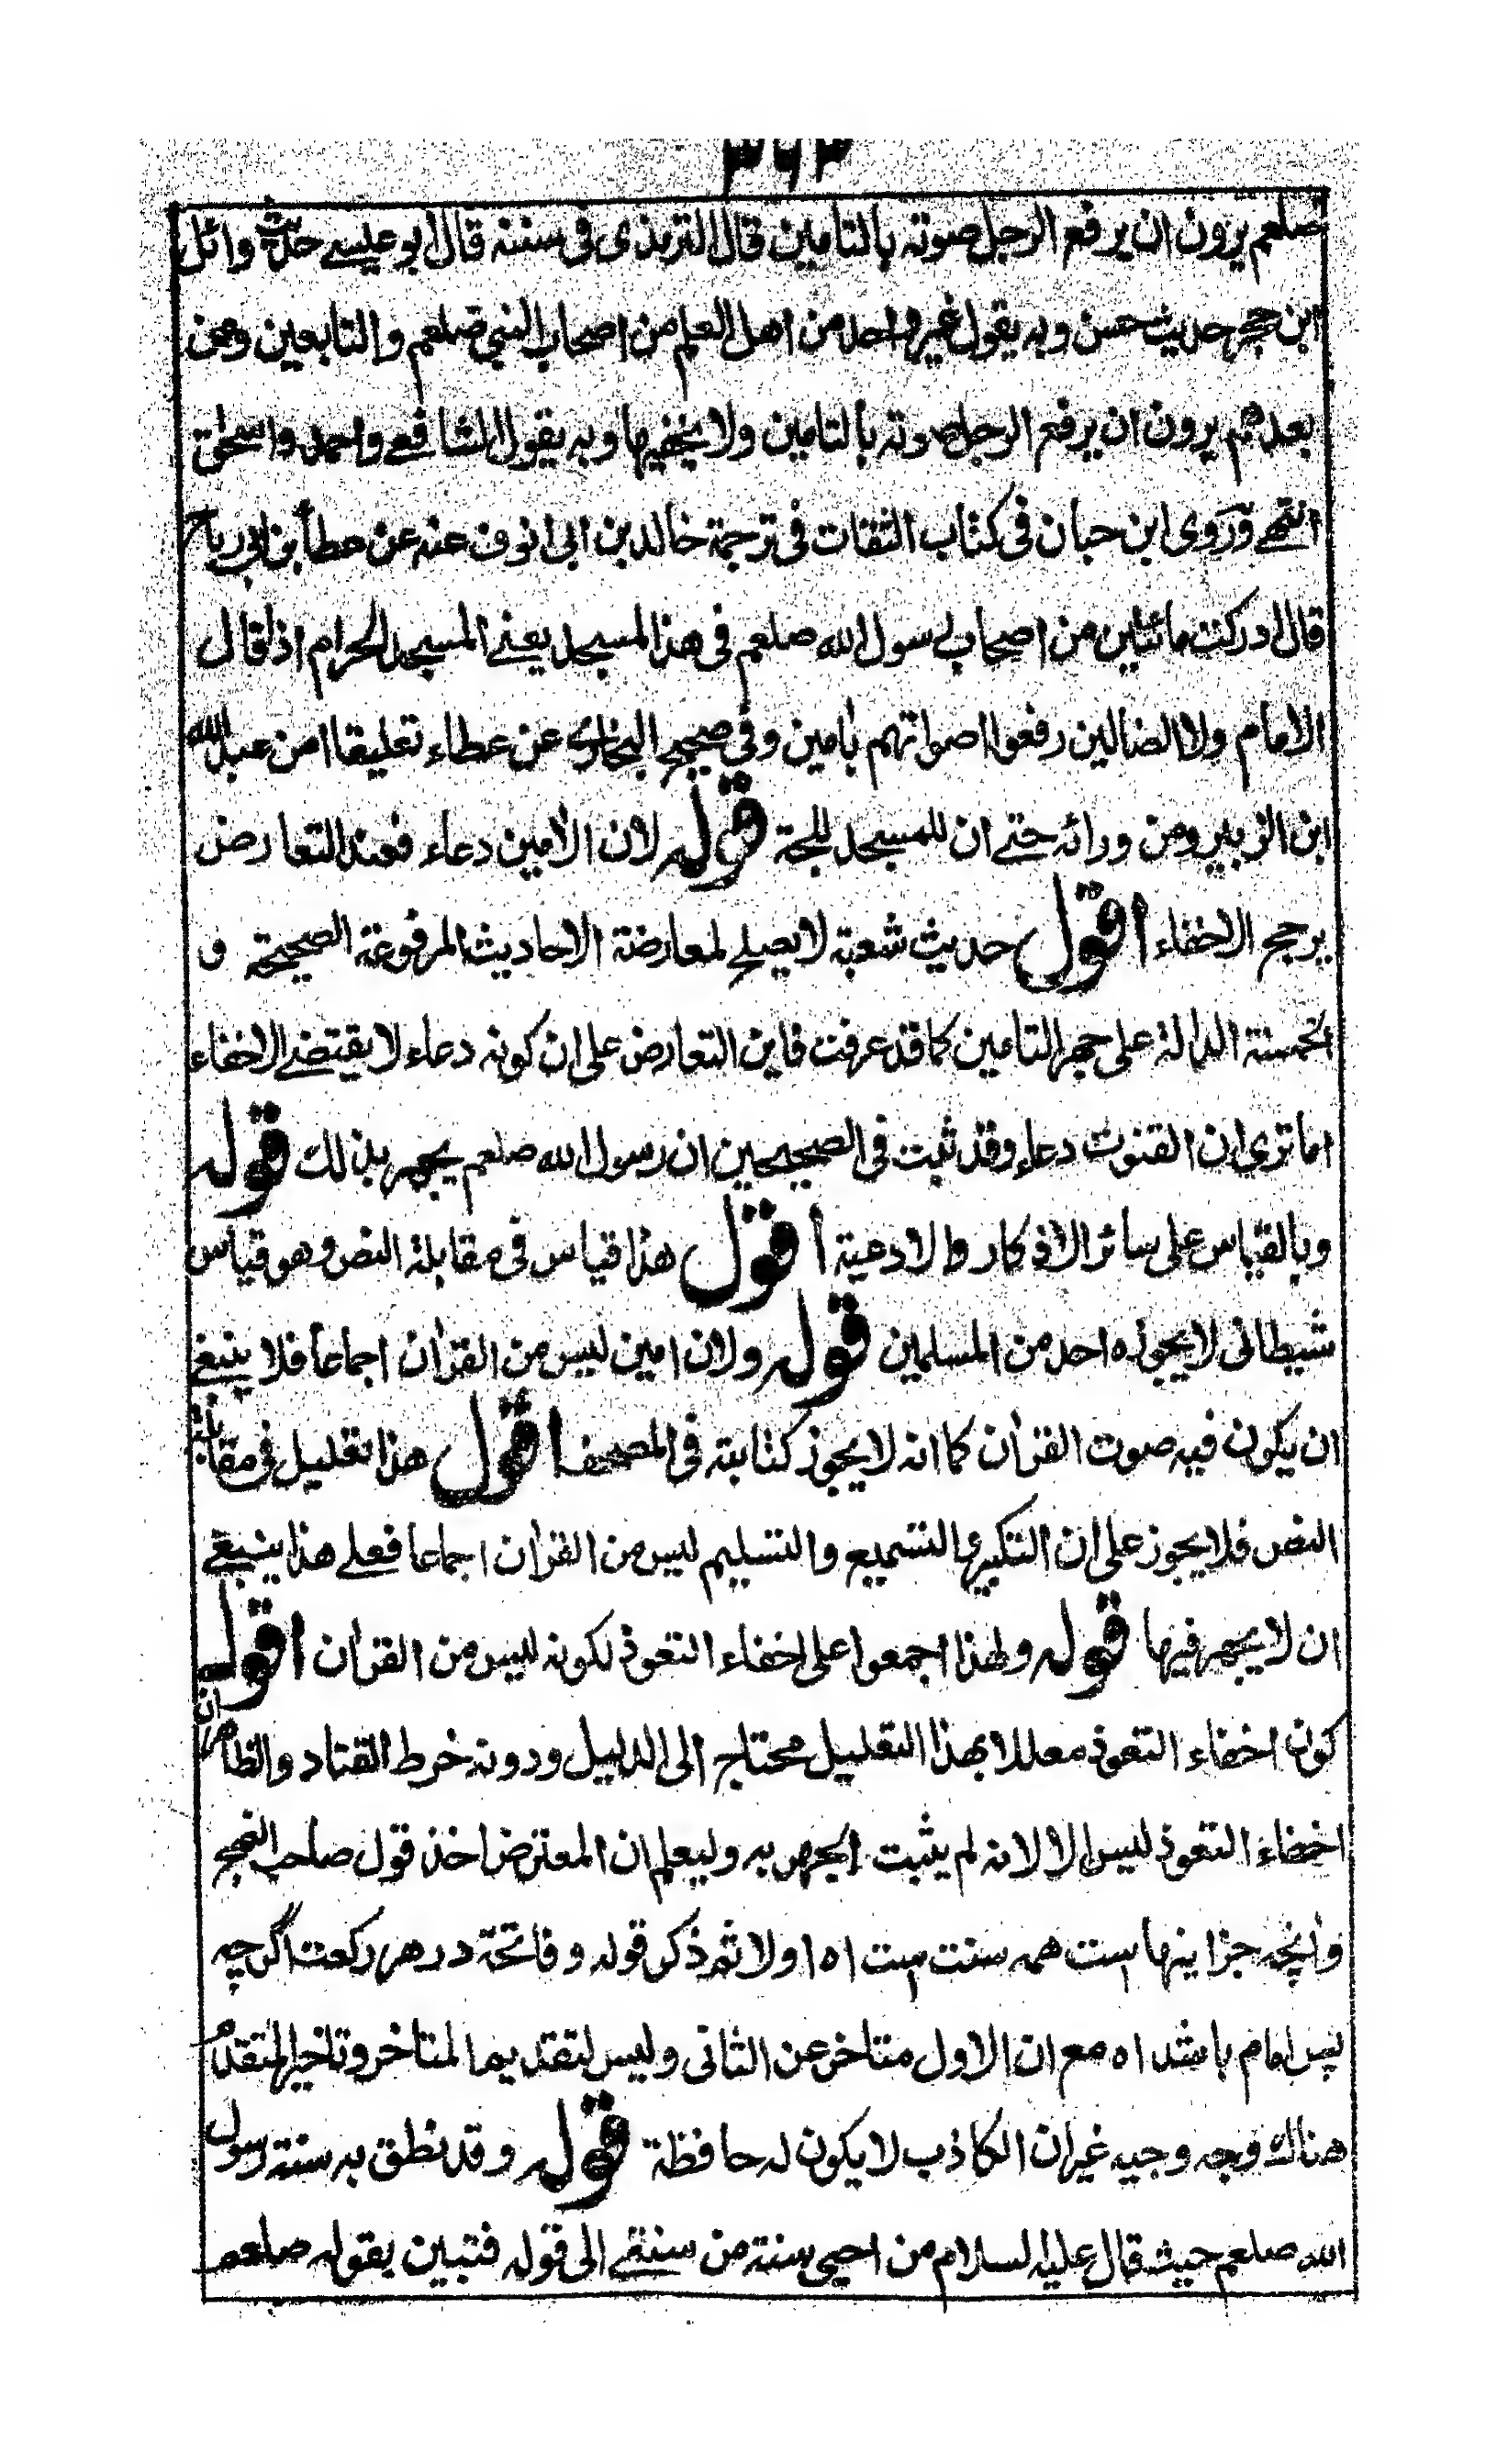 ٣٦٣
صلعم يرون ان يرفع الرجل صوته بالتامين قال الترمذى فى سننه قال ابو عيسے حديث وائل
ابن حجر حديث حسن وبه يقول غير واحد من اهل العلم من اصحاب النبي صلعم والتابعين ومن
بعدهم يرون ان يرفع الرجل صوته بالتامين ولا يخفيها وبه يقول الشافعے واحمد واسحٰق
انتهے وروى ابن حبان فى كتاب الثقات فى ترجمة خالد بن ابى انوف عنه عن عطأ بن ابى رباح
قال ادركت مائتين من اصحاب رسول الله صلعم فى هذا المسجد يعنے المسجد الحرام اذا قال
الامام ولا الضالين رفعوا اصواتهم بٰامين وفى صحيح البخارى عن عطاء تعليقا امن عبد الله
ابن الزبير ومن ورائه حتے ان للمسجد للجة قوله لان الاٰمين دعاء فعند التعارض
يرجح الاخفاء اقول حديث شعبة لا يصلح لمعارضة الاحاديث المرفوعة الصحيحة و
الحسنة الدالة على جهر التامين كما قد عرفت فاين التعارض على ان كونه دعاء لا يقتضے الاخفاء
اما ترى ان القنوت دعاء وقد ثبت فى الصحيحين ان رسول الله صلعم يجهر بذلك قوله
وبالقياس على سائر الاذكار والادعية اقول هذا قياس فى مقابلة النص وهو قياس
شيطانى لا يجوزه احد من المسلمين قوله ولان امين ليس من القراٰن اجماعا فلا ينبغے
ان يكون فيه صوت القراٰن كما انه لا يجوز كتابته فى المصحف اقول هذا تعليل فى مقابلة
النص فلا يجوز على ان التكبير والتسميع والتسليم ليس من القراٰن اجماعا فعلے هذا ينبغے
ان لا يجهر فيها قوله ولهذا اجمعوا على اخفاء التعوذ لكونه ليس من القراٰن اقول
كون اخفاء التعوذ معللا بهذا التعليل محتاج الى الدليل ودونه خرط القتاد والظاهر ان
اخفاء التعوذ ليس الا لانه لم يثبت الجهر به وليعلم ان المعترض اخذ قول صاحب النهج
واٰنچه جز اينها ست همه سنت ست اه اولا ثم ذكر قوله وفاتحة در هر ركعت اگرچه
پس امام باشد اه مع ان الاول متاخر عن الثانى وليس لتقديم المتاخر وتاخير المتقدم
هناك وجه وجيه غير ان الكاذب لا يكون له حافظة قوله وقد نطق به سنة رسول
الله صلعم حيث قال عليه السلام من احيى سنة من سنتے الى قوله فتبين بقوله صلعم